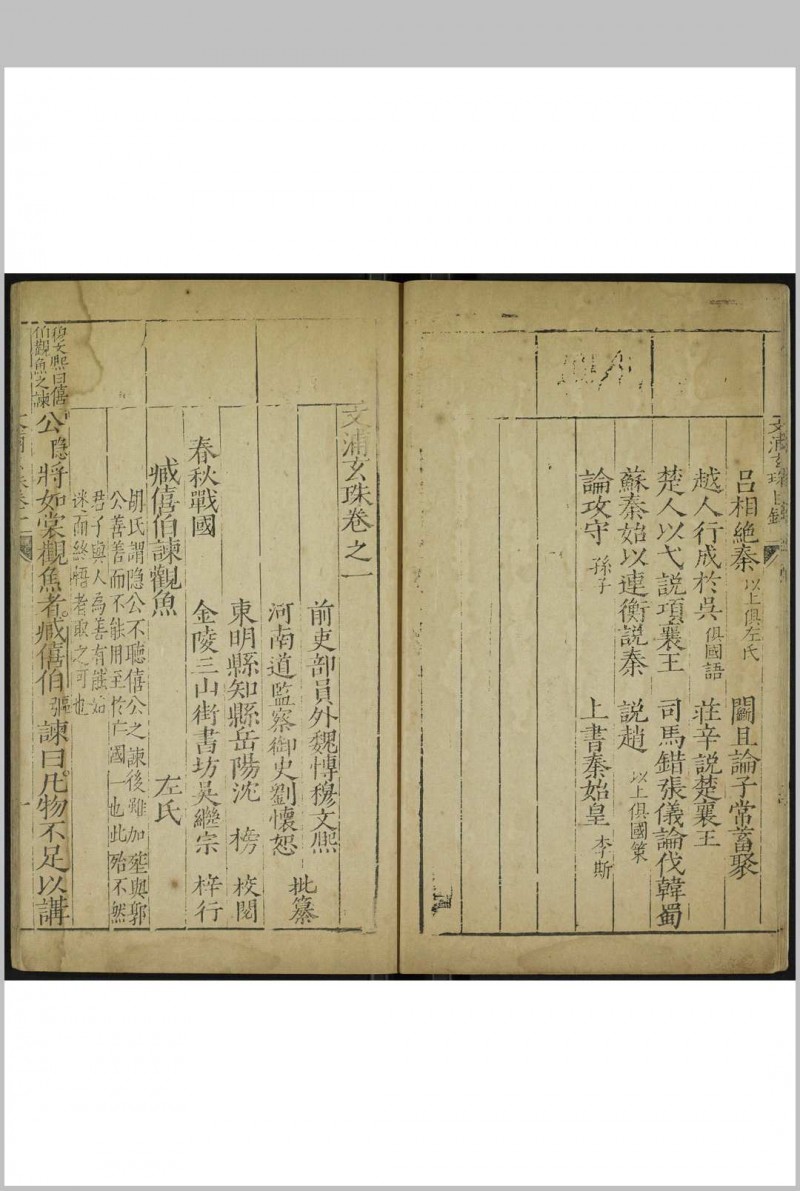 呂相絶秦 以上俱左氏 鬬且論子常蓄聚
越人行成於吳 俱國語 莊辛説楚襄王
楚人以弋説項襄王 司馬錯張儀論伐韓蜀
蘇秦始以連衡説秦 説趙 以上俱國策
論攻守 孫子 上書秦始皇 李斯
文浦玄珠卷之一
前吏部員外魏博穆文熈
批纂
河南道監察御史劉懷恕
東明縣知縣岳陽沈 榜 校閱
金陵三山街書坊吴繼宗 梓行
春秋戰國
臧僖伯諫觀魚 左氏
胡氏謂隐公不聽僖公之諫後雖加䓁與郭
公善善而不能用至於亡國一也此殆不然
君子與人爲善有
迷而終悟者取之可也
穆文熈曰僖
伯觀魚之諫
公 隐 將如棠觀魚者臧僖伯 諫曰凡物不足以講